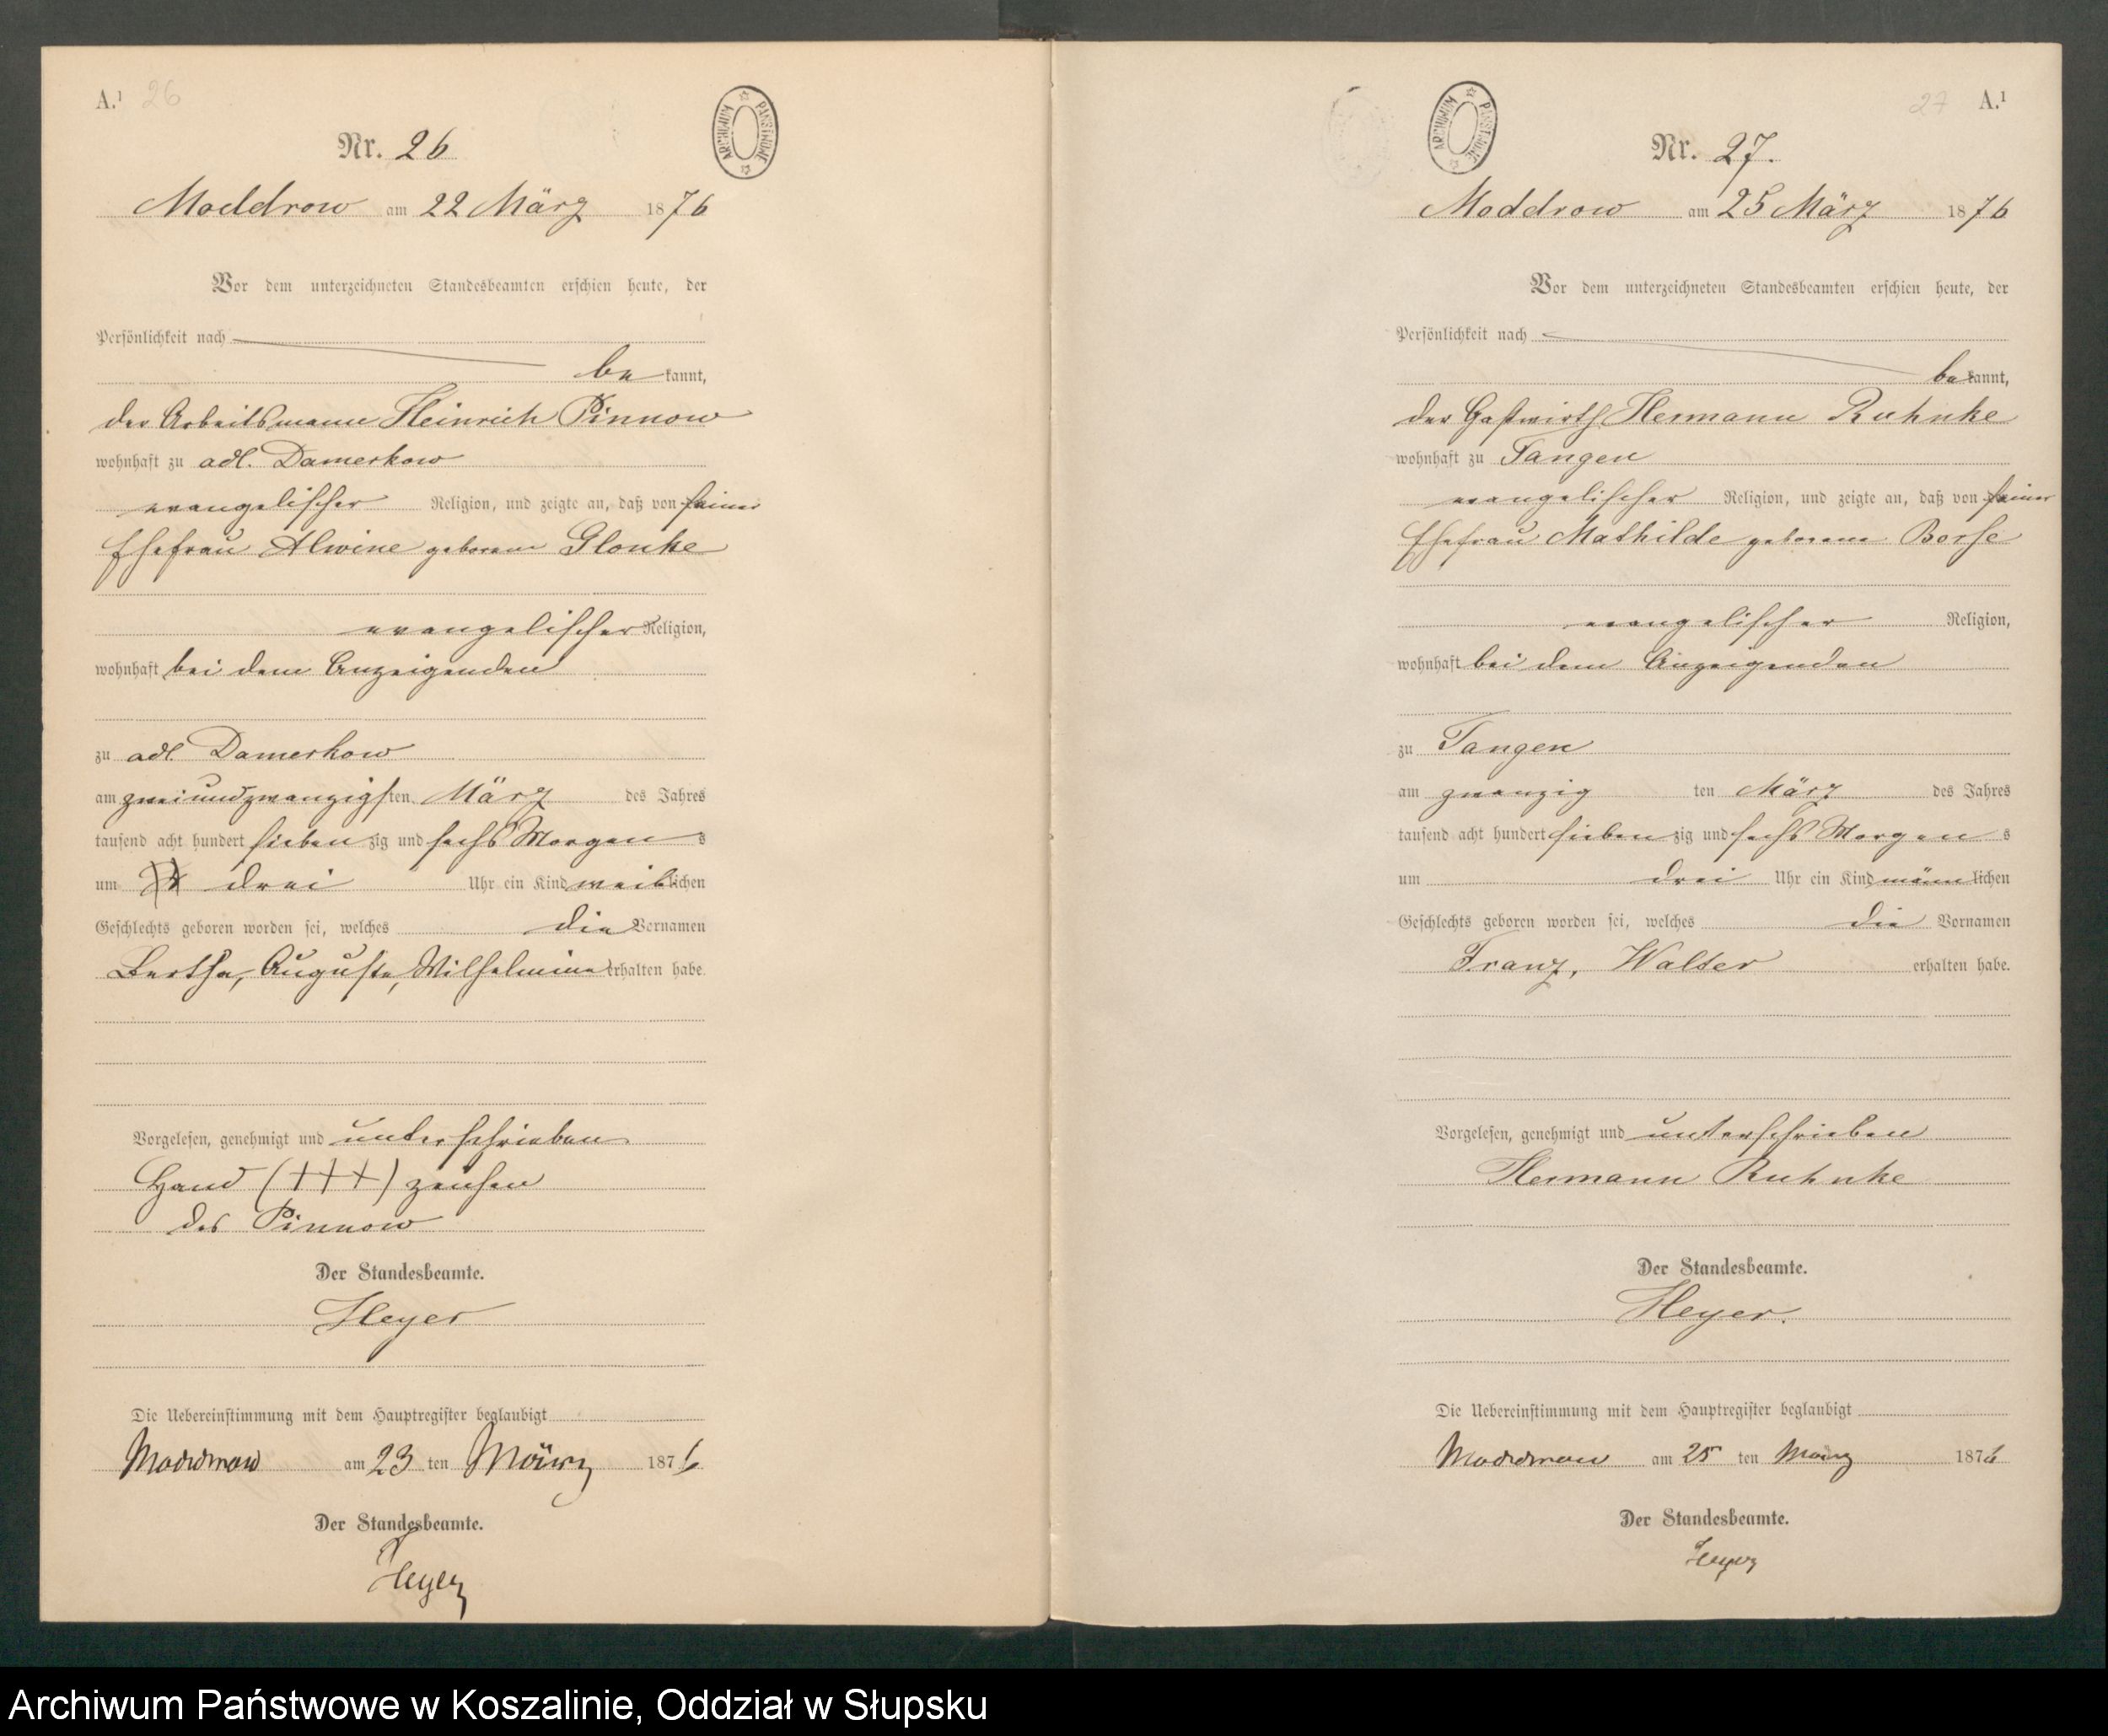 A.¹ 26
ARCHIWUM PAŃSTWOWE
Nr. 26
Moddrow am 22 März 1876
Vor dem unterzeichneten Standesbeamten erschien heute, der
Persönlichkeit nach
be kannt,
der Arbeitsmann Heinrich Pinnow
wohnhaft zu adl. Damerkow
evangelischer Religion, und zeigte an, daß von seiner
Ehefrau Alwine geborene Glonke
evangelischer Religion,
wohnhaft bei dem Anzeigenden
zu adl. Damerkow
am zweiundzwanzigsten März des Jahres
tausend acht hundert sieben zig und sechs Morgens
um drei Uhr ein Kind weiblichen
Geschlechts geboren worden sei, welches die Vornamen
Bertha, Auguste, Wilhelmine erhalten habe.
Vorgelesen, genehmigt und unterschrieben
Hand (+++) zeichen
des Pinnow
Der Standesbeamte.
Heyer
Die Uebereinstimmung mit dem Hauptregister beglaubigt
Moddrow am 23 ten März 1876
Der Standesbeamte.
Heyer
27 A.¹
ARCHIWUM PAŃSTWOWE
Nr. 27.
Moddrow am 25 März 1876
Vor dem unterzeichneten Standesbeamten erschien heute, der
Persönlichkeit nach
bekannt,
der Gastwirth Hermann Ruhnke
wohnhaft zu Tangen
evangelischer Religion, und zeigte an, daß von seiner
Ehefrau Mathilde geborene Borse
evangelischer Religion,
wohnhaft bei dem Anzeigenden
zu Tangen
am zwanzig ten März des Jahres
tausend acht hundert sieben zig und sechs Morgens
um drei Uhr ein Kind männlichen
Geschlechts geboren worden sei, welches die Vornamen
Franz, Walter erhalten habe.
Vorgelesen, genehmigt und unterschrieben
Hermann Ruhnke
Der Standesbeamte.
Heyer.
Die Uebereinstimmung mit dem Hauptregister beglaubigt
Moddrow am 25 ten März 1876
Der Standesbeamte.
Heyer
Archiwum Państwowe w Koszalinie, Oddział w Słupsku